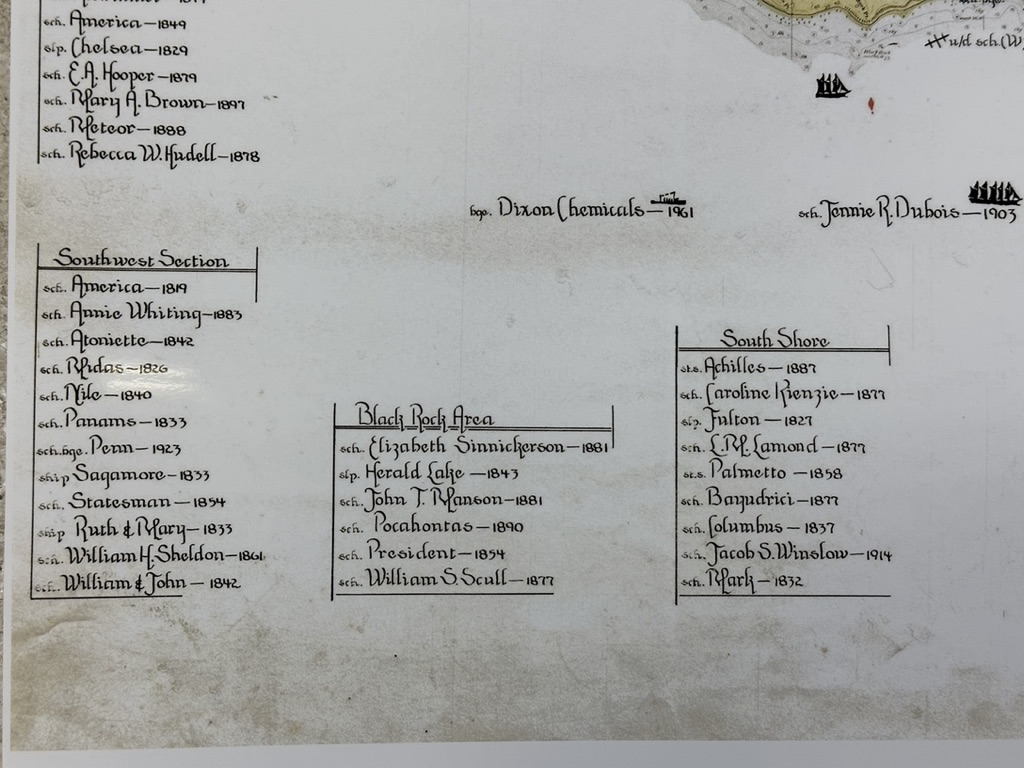 sch. America—1849
slp. Chelsea—1829
sch. E.A. Hooper—1879
sch. Mary A. Brown—1897
sch. Meteor—1888
sch. Rebecca W. Hudell—1878
u/d sch. (W.
bge. Dixon Chemicals—1961
sch. Jennie R. Dubois—1903
Southwest Section
sch. America—1819
sch. Annie Whiting—1883
sch. Atoniette—1842
sch. Midas—1826
sch. Nile—1840
sch. Panams—1833
sch.bge. Penn—1923
ship Sagamore—1833
sch. Statesman—1854
ship Ruth & Mary—1833
sch. William H. Sheldon—1861
sch. William & John—1842
Black Rock Area
sch. Elizabeth Sinnickerson—1881
slp. Herald Lake—1843
sch. John T. Manson—1881
sch. Pocahontas—1890
sch. President—1854
sch. William S. Scull—1877
South Shore
sts. Achilles—1887
sch. Caroline Kienzie—1877
slp. Fulton—1827
sch. L.M. Lamond—1877
sts. Palmetto—1858
sch. Bayudrici—1877
sch. Columbus—1837
sch. Jacob S. Winslow—1914
sch. Mark—1832